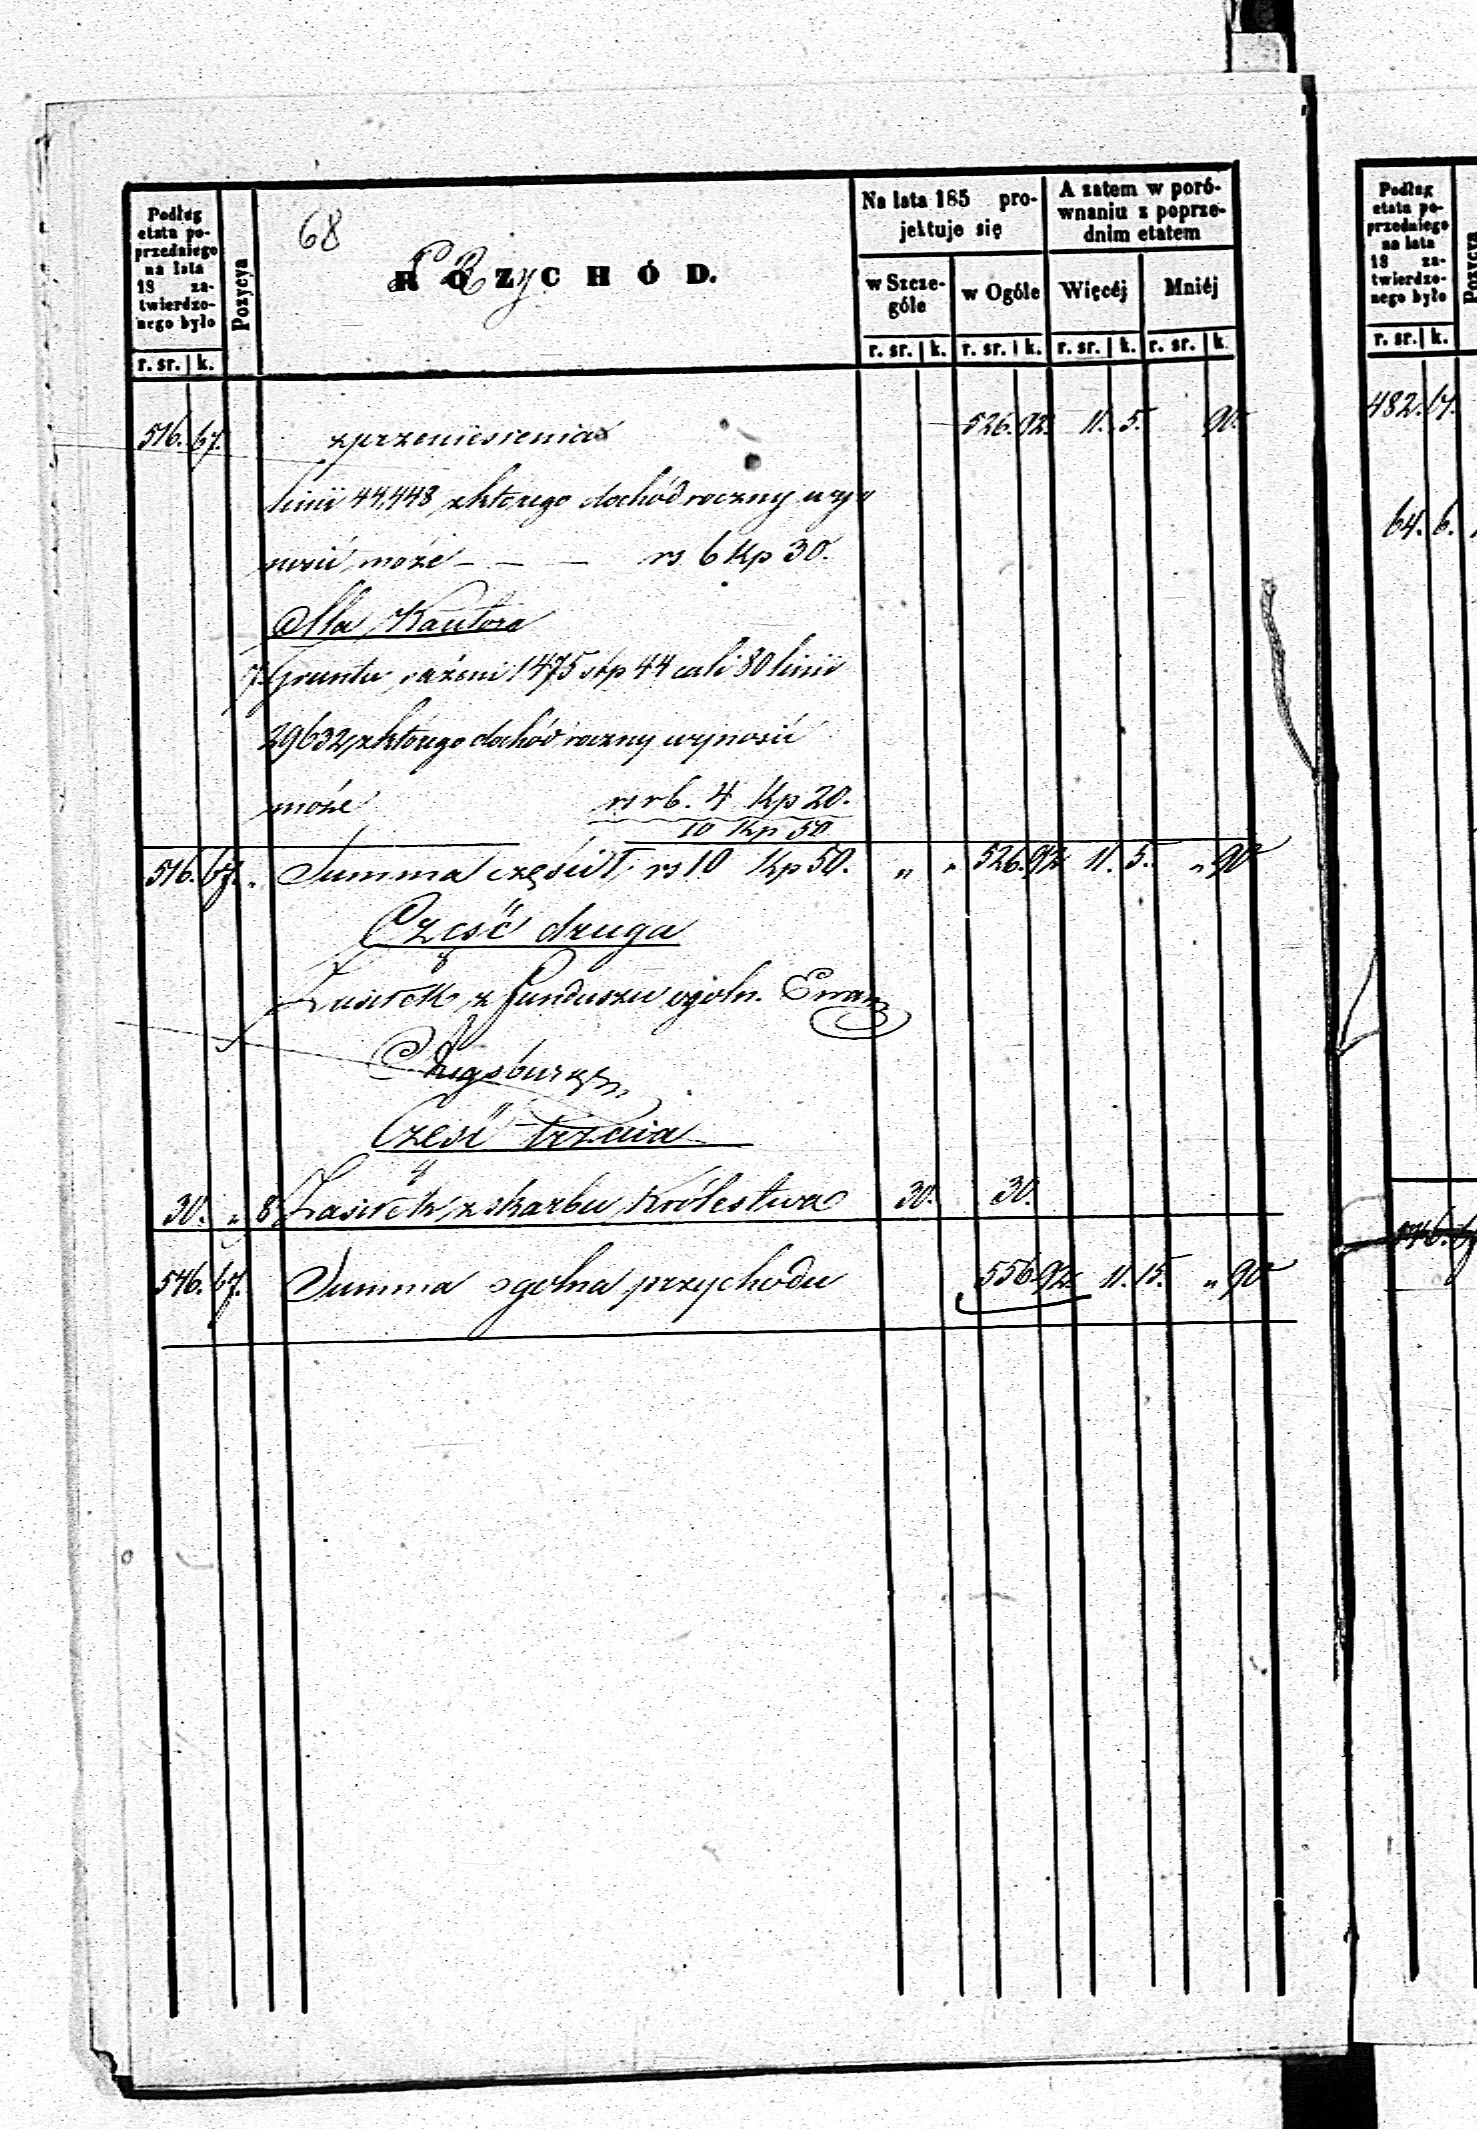 68
Podług etatu poprzedniego na lata 18 zatwierdzonego było
Pozycya
ROZCHÓD.
Przy
Na lata 185 projektuje się
A zatem w porównaniu z poprzednim etatem
w Szczególe
w Ogóle
Więcéj
Mniéj
r. sr. k. r. sr. k. r. sr. k. r. sr. k. r. sr. k.
516. 67. z przeniesienia 526. 92. 11. 5. 90.
linii 44,448, z którego dochód roczny wy=
nosić może – – – rs 6 kp 30.
Dla Kantora
7. Gruntu, sążeni 1475 stp 44 cali 80 linii
29632, z którego dochód roczny wynosić
może rsrb. 4 kp 20.
10 kp 50
516. 67. „ Summa części I. rs 10 kp 50. „ „ 526. 92 11. 5. „ 90
Część druga
Zasiłek z Funduszu ogóln. Ewan
Augsburg
Część trzecia
30. „ 8 Zasiłek z skarbu Królestwa 30. 30.
546. 67. Summa ogólna przychodu 556. 92 11. 15. „ 90
Podług etatu poprzedniego na lata 18 zatwierdzonego było
Pozycya
r. sr. k.
482. 17.
64. 6.
546. 6